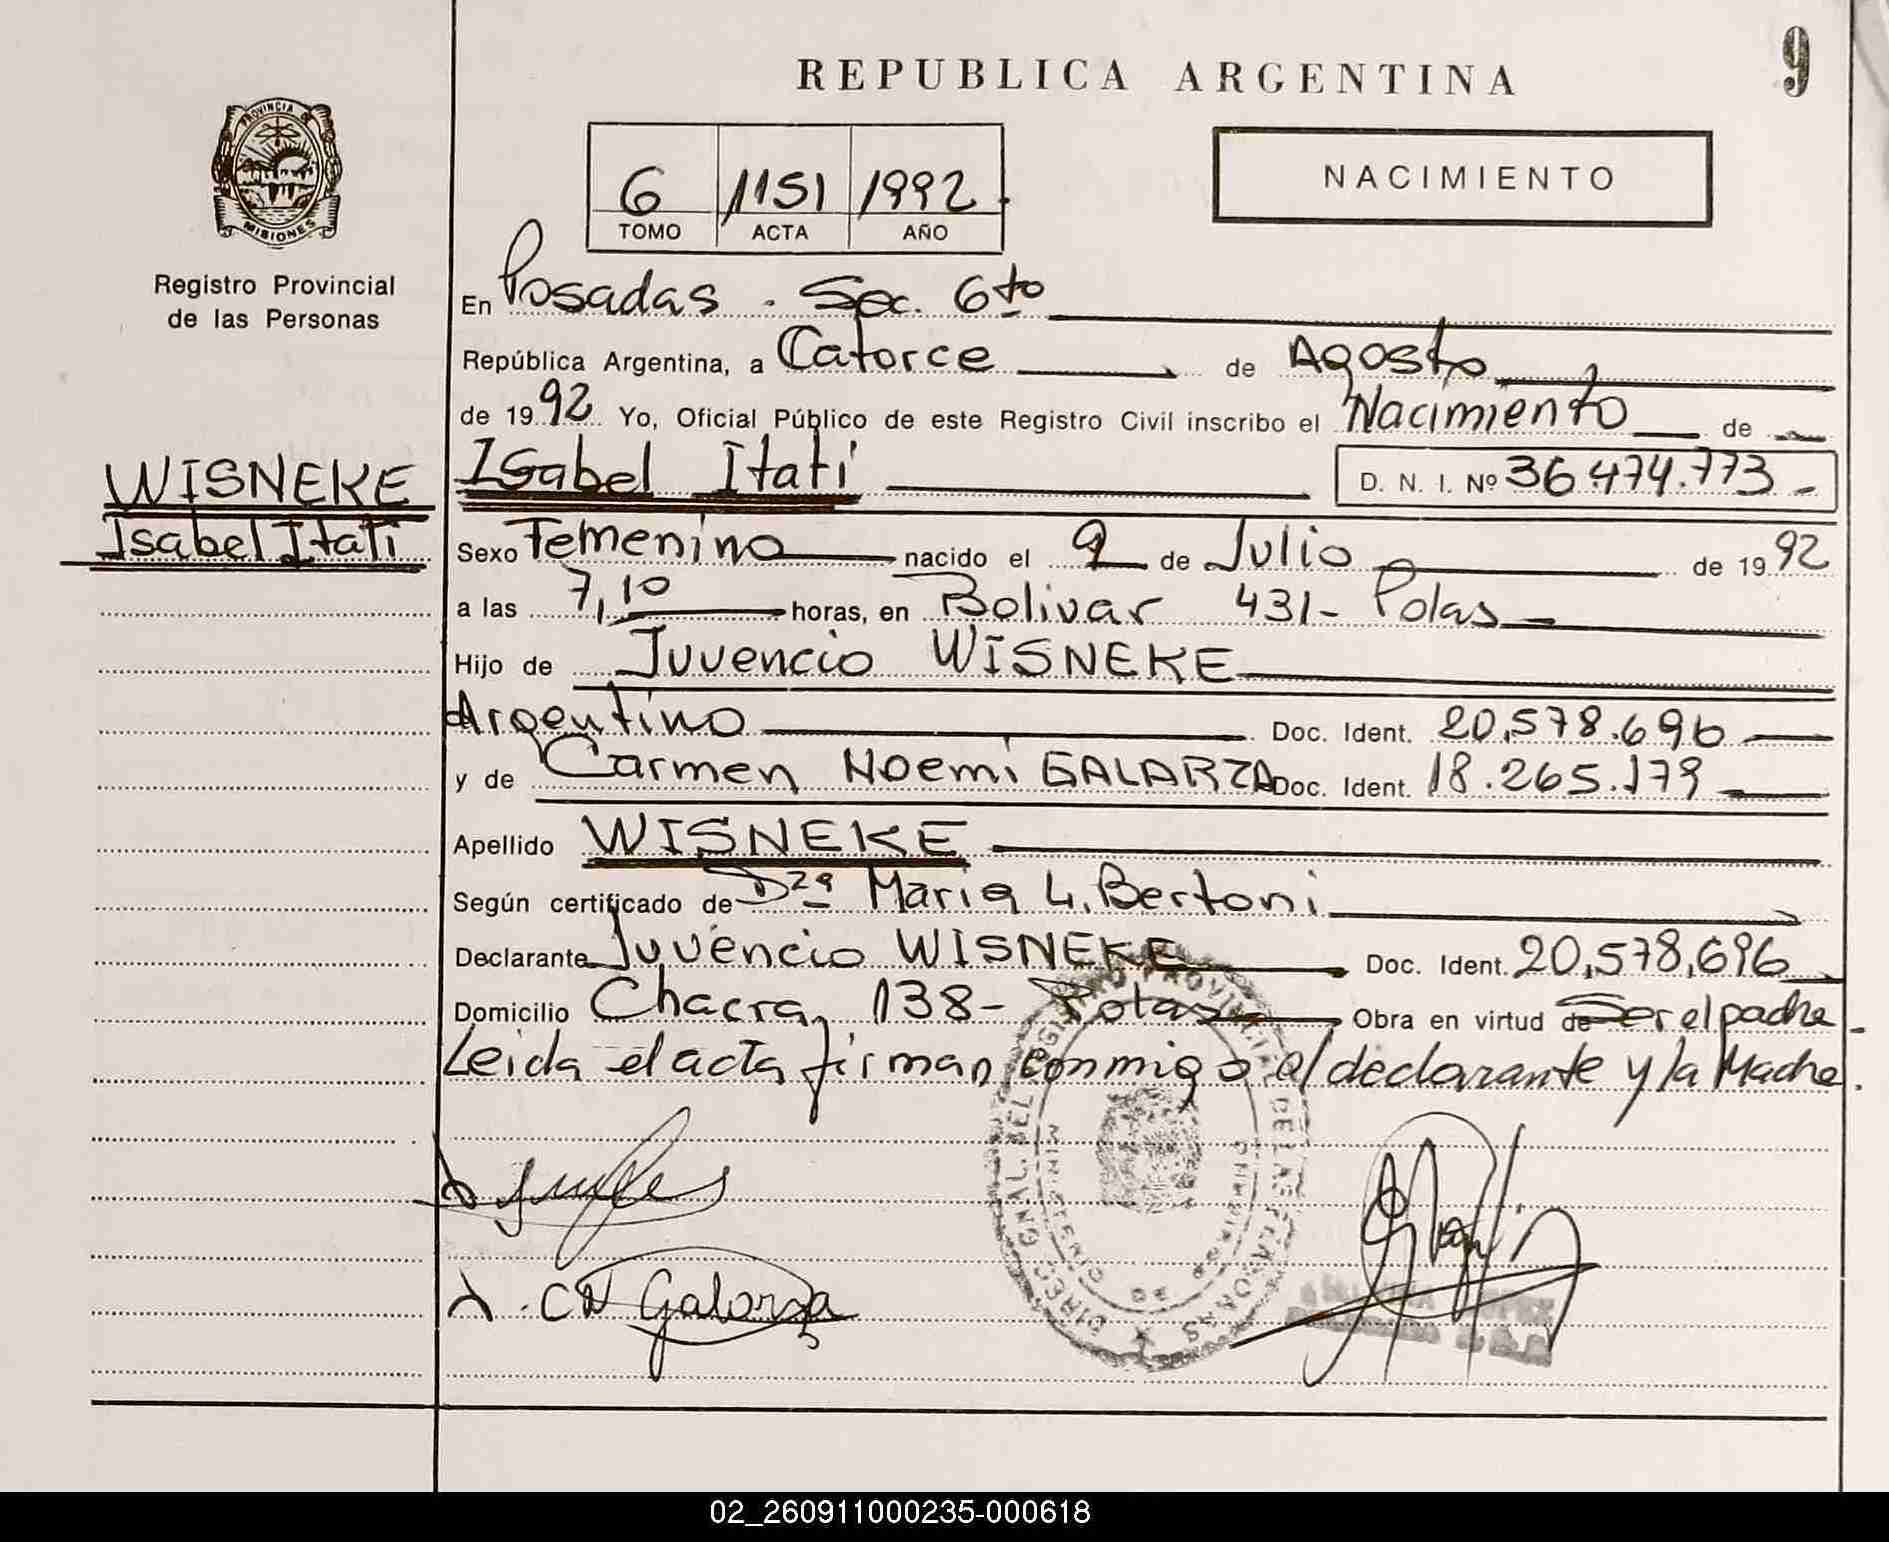 REPUBLICA ARGENTINA
9
PROVINCIA DE
MISIONES
Registro Provincial
de las Personas
6 1151 1992
TOMO ACTA AÑO
NACIMIENTO
En Posadas. Sec. 6to
República Argentina, a Catorce de Agosto
de 1992 Yo, Oficial Público de este Registro Civil inscribo el Nacimiento de
WISNEKE
Isabel Itati
Isabel Itati D. N. I. Nº 36.474.773
Sexo Femenino nacido el 9 de Julio de 1992
a las 7,10 horas, en Bolivar 431- Pdas
Hijo de Juvencio WISNEKE
Argentino Doc. Ident. 20,578.696
y de Carmen Noemi GALARZA Doc. Ident. 18.265.179
Apellido WISNEKE
Según certificado de Dra Maria L. Bertoni
Declarante Juvencio WISNEKE Doc. Ident. 20,578,696
Domicilio Chacra 138- Pdas Obra en virtud de Ser el padre
Leida el acta firman conmigo el declarante y la Madre.
CN Galarza
02_260911000235-000618